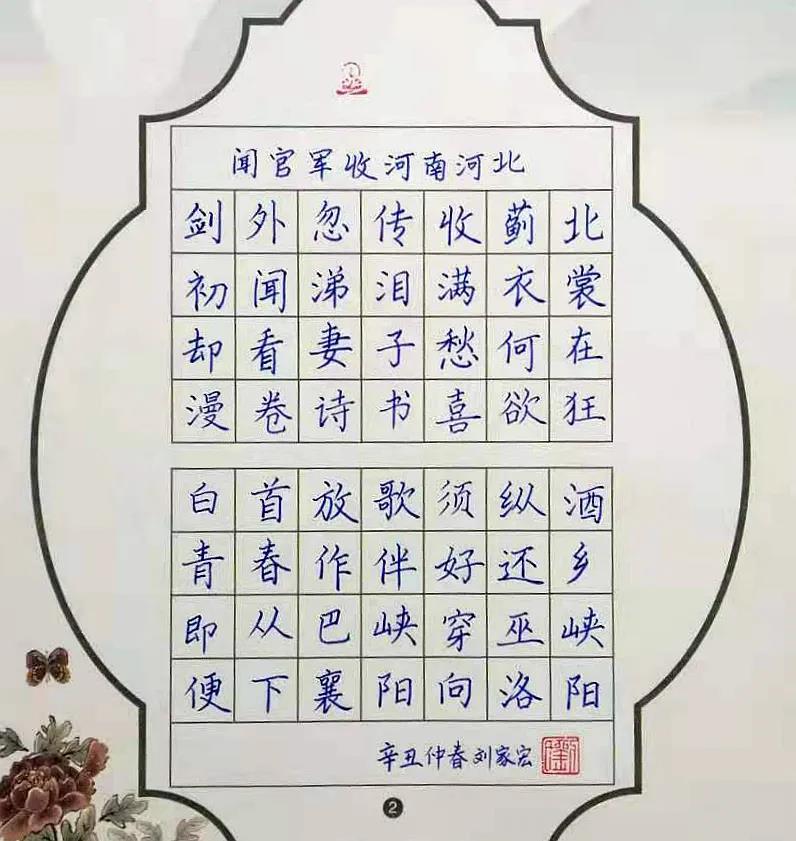 闻官军收河南河北
剑外忽传收蓟北
初闻涕泪满衣裳
却看妻子愁何在
漫卷诗书喜欲狂
白首放歌须纵酒
青春作伴好还乡
即从巴峡穿巫峡
便下襄阳向洛阳
辛丑仲春刘家宏
2